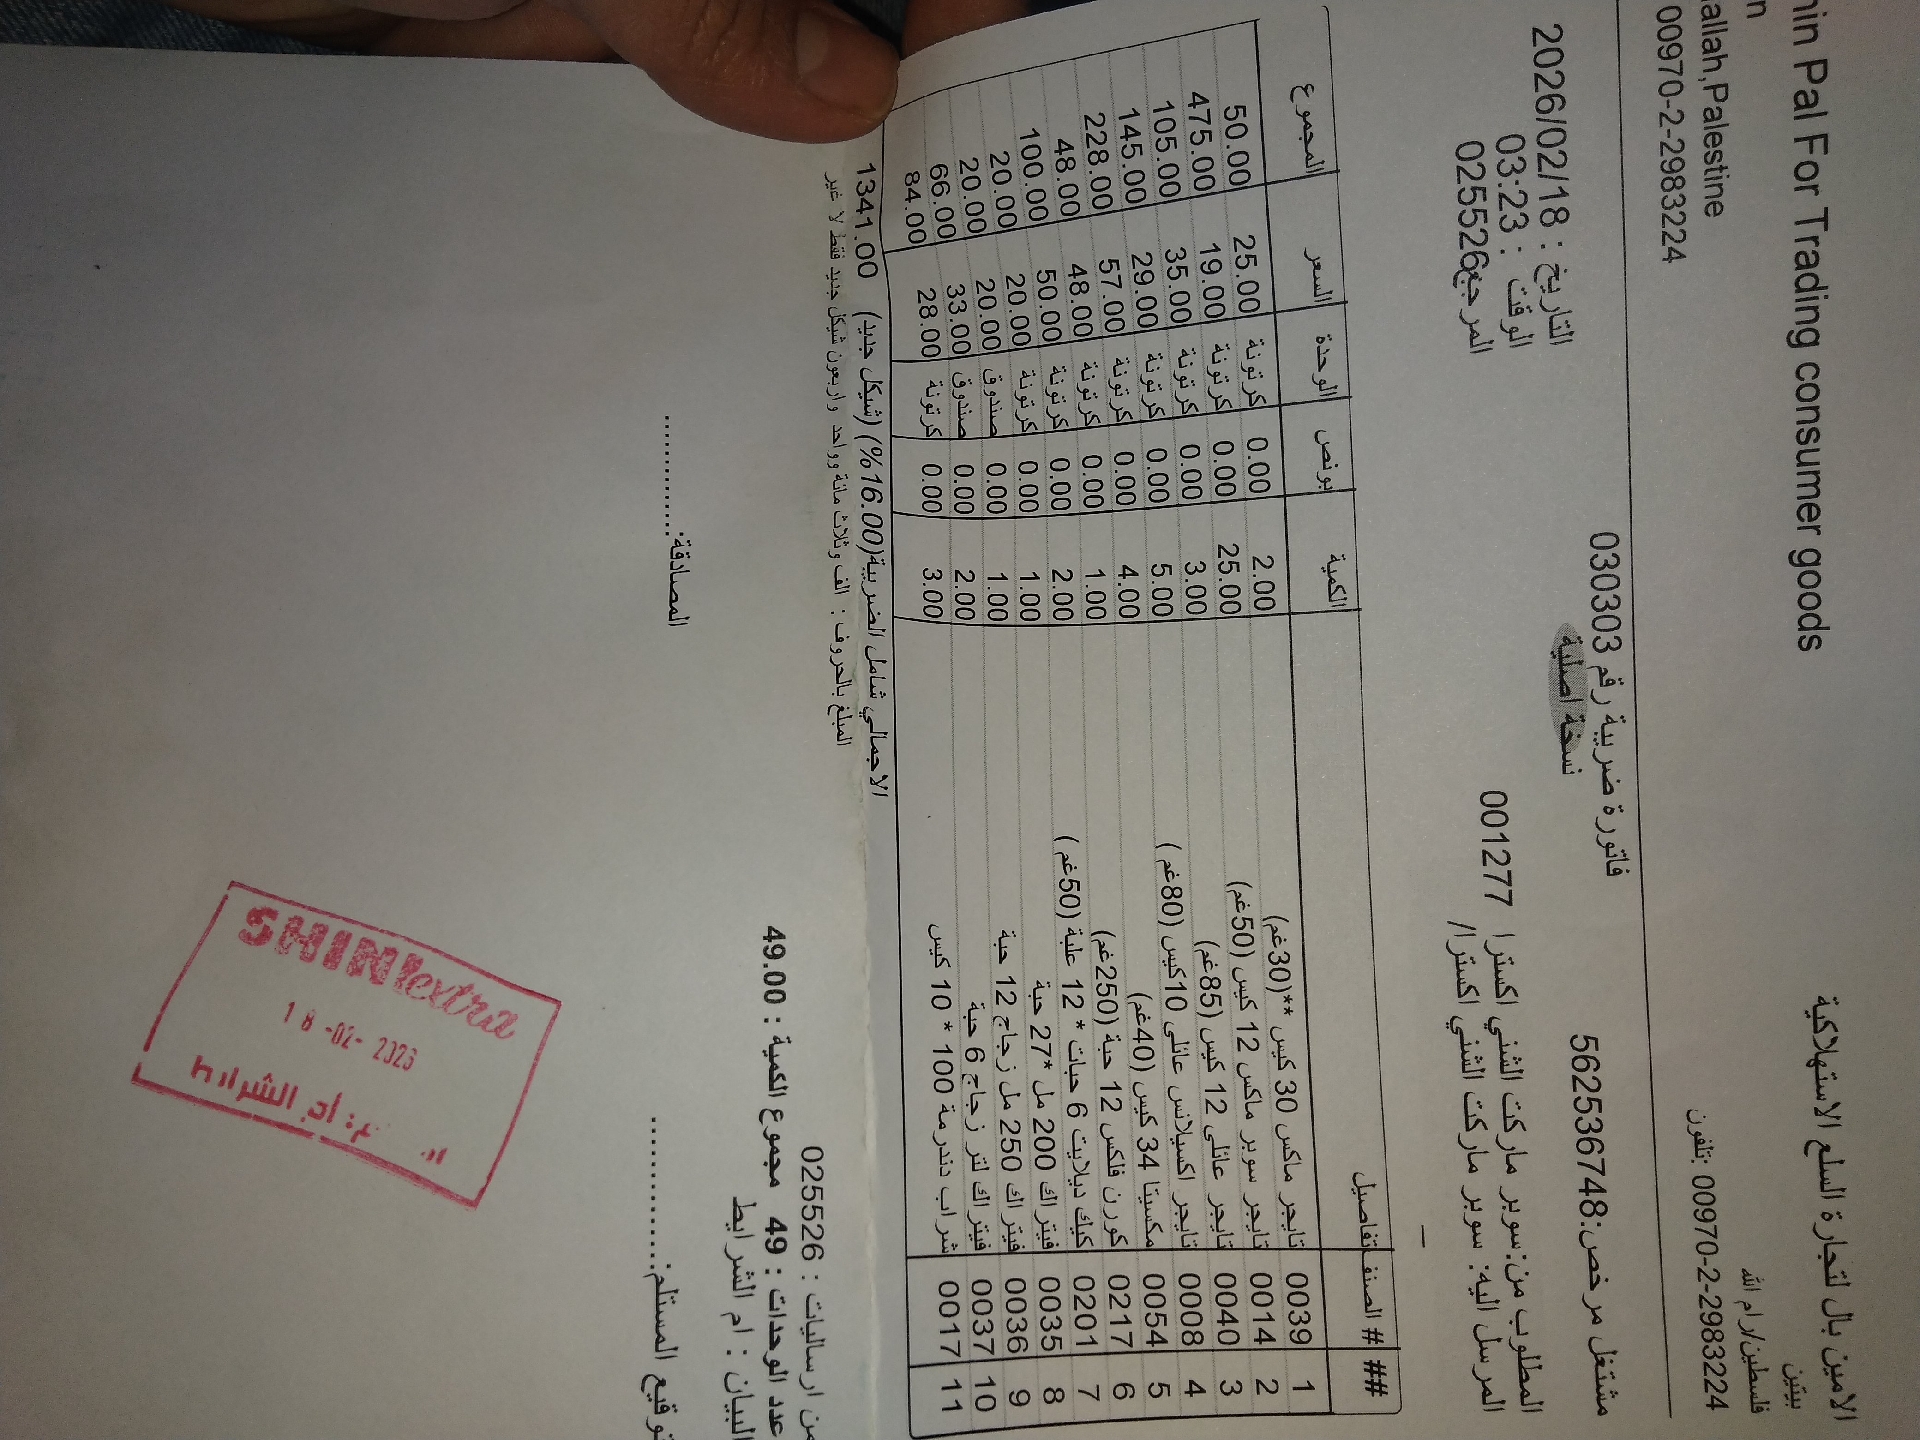 الامين بال لتجارة السلع الاستهلاكية
hin Pal For Trading consumer goods
بيتين
n
فلسطين/رام الله
allah,Palestine
تلفون: 00970-2-2983224
00970-2-2983224
مشتغل مرخص:562536748
فاتورة ضريبة رقم 030303
نسخة اصلية
التاريخ : 2026/02/18
المطلوب من:سوبر ماركت الشني اكسترا 001277
الوقت : 03:23
المرسل اليه: سوبر ماركت الشني اكسترا/
المرجع025526
## # الصنف تفاصيل الكمية بونص الوحدة السعر المجموع
1 0039 تايجر ماكس 30 كيس **(30غم) 2.00 0.00 كرتونة 25.00 50.00
2 0014 تايجر سوبر ماكس 12 كيس (50غم) 25.00 0.00 كرتونة 19.00 475.00
3 0040 تايجر عائلي 12 كيس (85غم) 3.00 0.00 كرتونة 35.00 105.00
4 0008 تايجر اكسيلانس عائلي 10كيس (80غم) 5.00 0.00 كرتونة 29.00 145.00
5 0054 مكسيتا 34 كيس (40غم) 4.00 0.00 كرتونة 57.00 228.00
6 0217 كورن فلكس 12 حبة (250غم) 1.00 0.00 كرتونة 48.00 48.00
7 0201 كيك ديلايت 6 حبات * 12 علبة (50غم) 2.00 0.00 كرتونة 50.00 100.00
8 0035 فيتراك 200 مل *27 حبة 1.00 0.00 كرتونة 20.00 20.00
9 0036 فيتراك 250 مل زجاج 12 حبة 1.00 0.00 صندوق 20.00 20.00
10 0037 فيتراك لتر زجاج 6 حبة 2.00 0.00 صندوق 33.00 66.00
11 0017 شراب دندرمة 100 * 10 كيس 3.00 0.00 كرتونة 28.00 84.00
الاجمالي شامل الضريبة(16.00%) (شيكل جديد) 1341.00
المبلغ بالحروف : الف وثلاث مائة وواحد واربعون شيكل جديد فقط لا غير
من ارساليات : 025526
عدد الوحدات : 49 مجموع الكمية : 49.00
البيان : ام الشرايط
توقيع المستلم:...........
المصادقة:...........
SHINI extra
18 -02- 2026
أم الشرايط